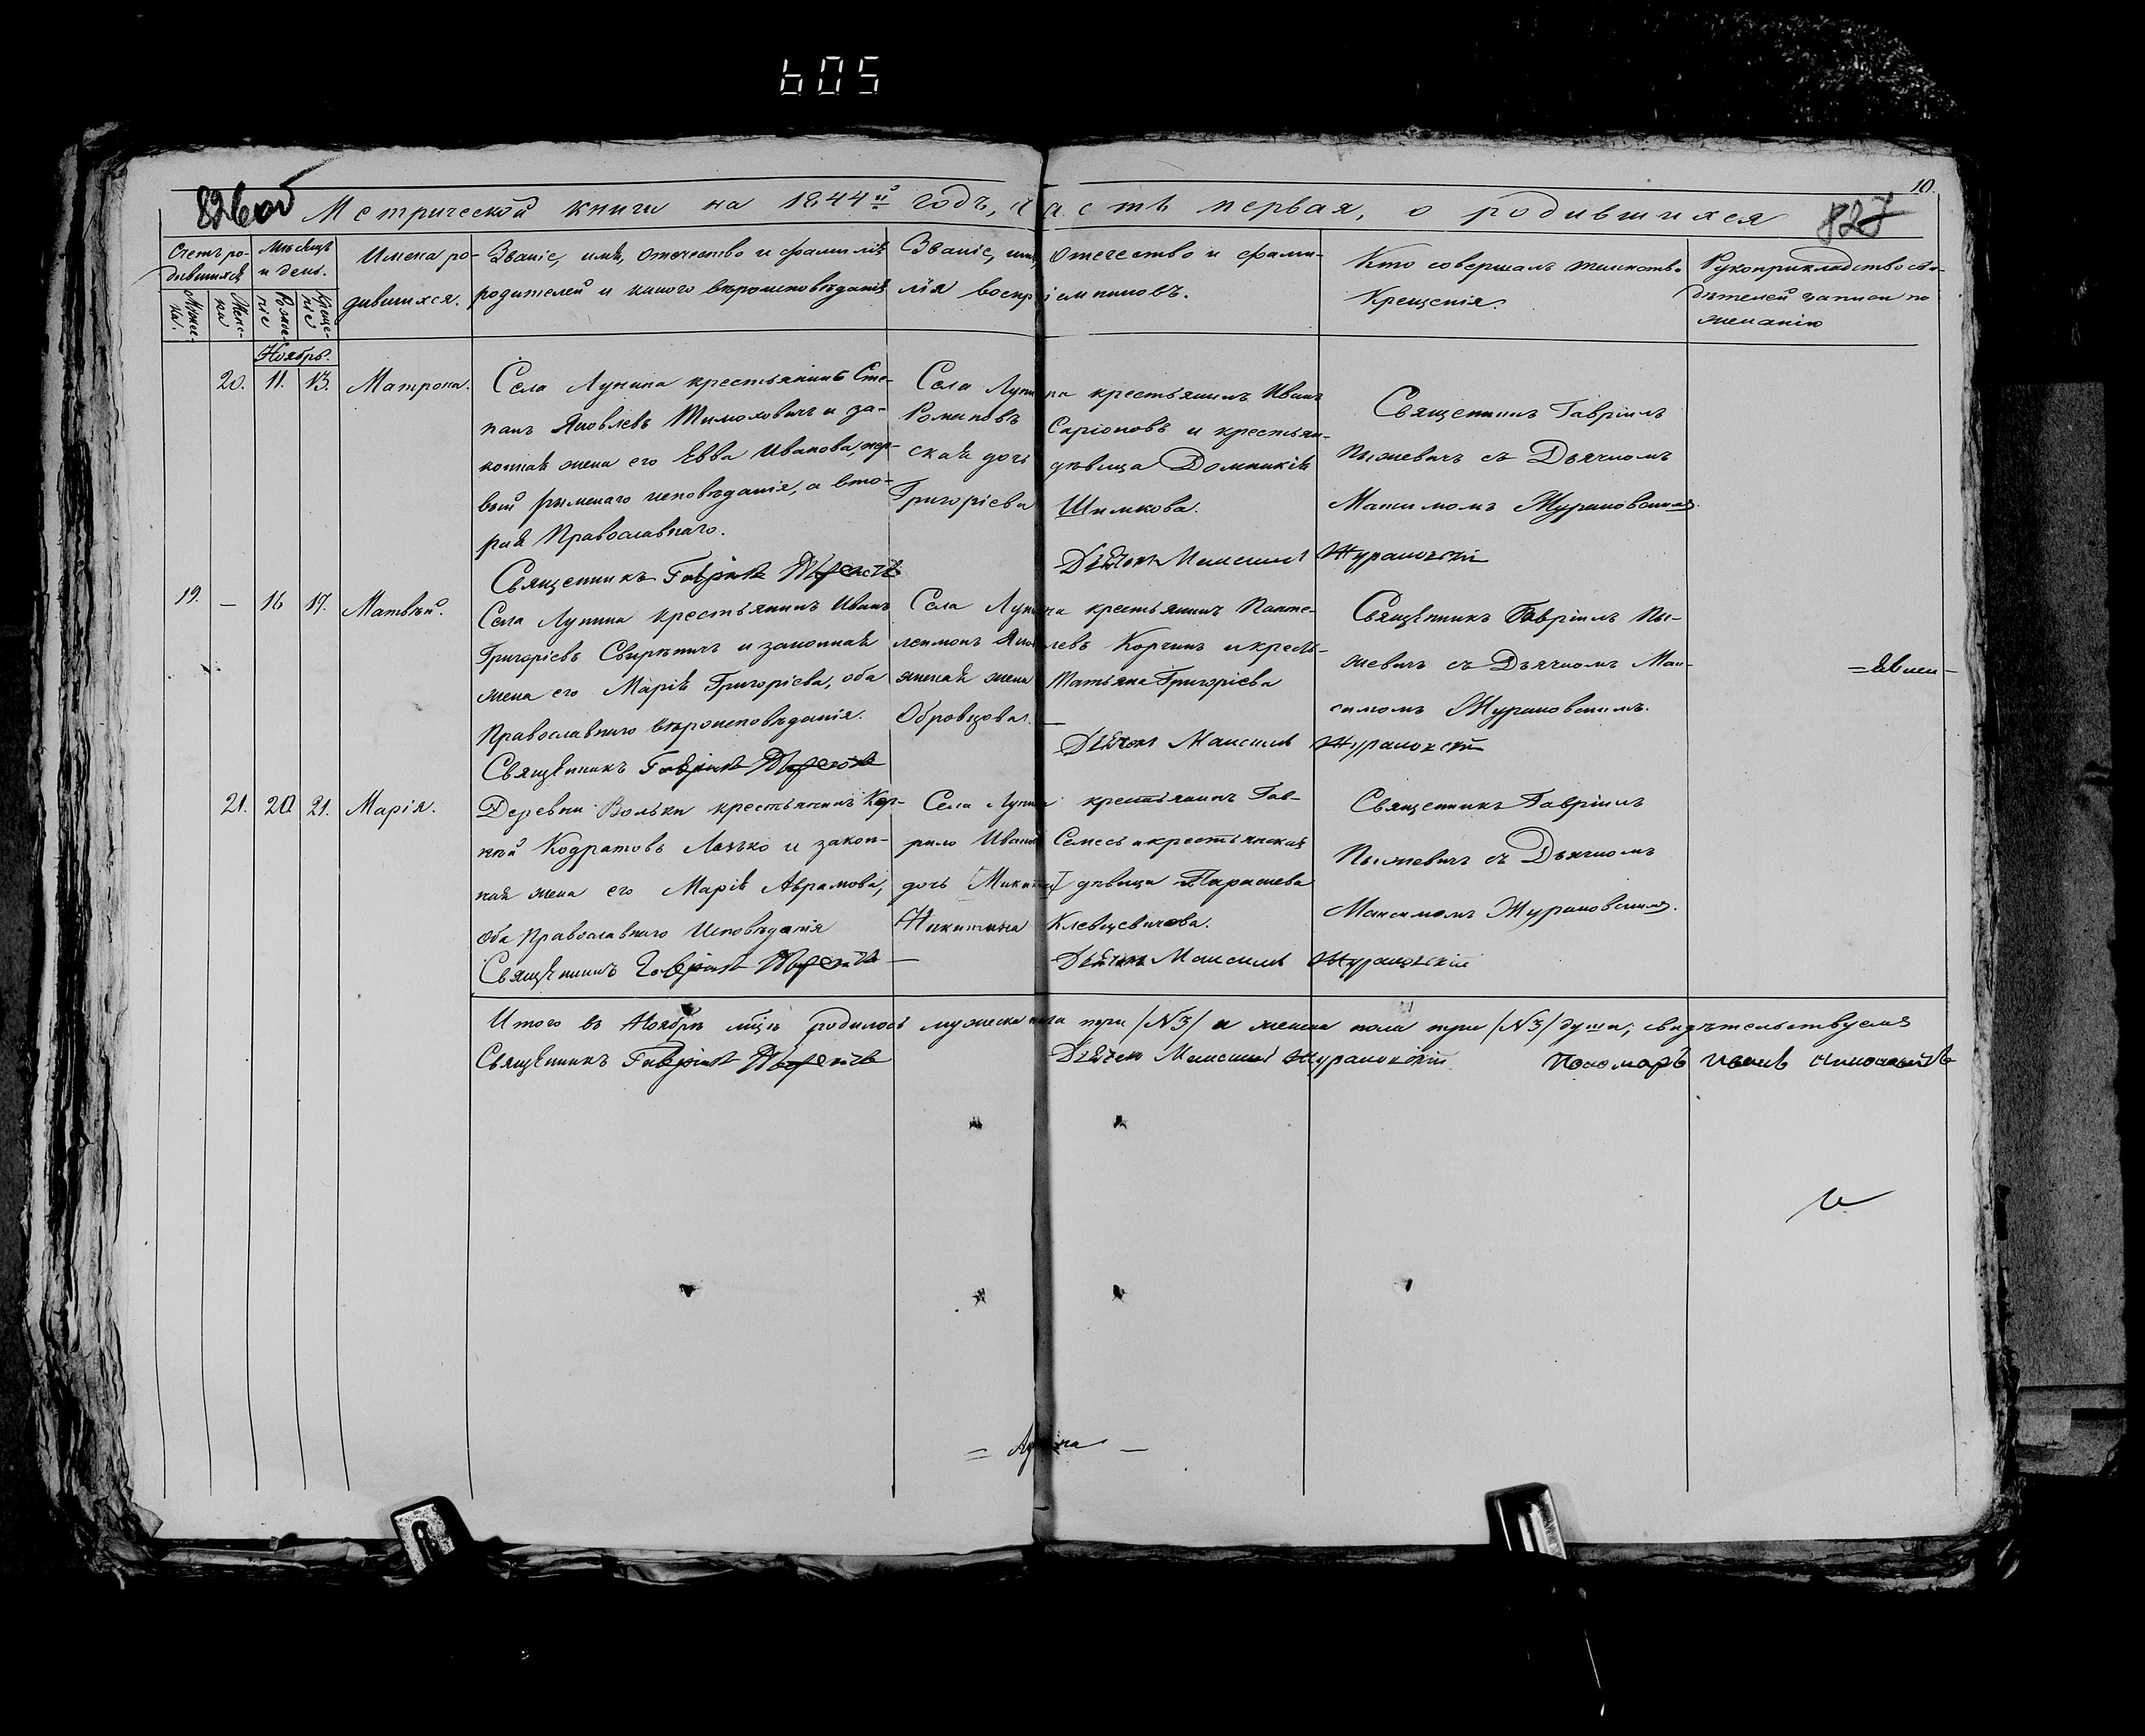 605
826об
Метрической книги на 1844й годъ, часть первая, о родившихся
827
10.
Счетъ ро-
дившихся
Мѣсяцъ
и день.
Имена ро-
дившихся.
Званіе, имя, отечество и фамилія
родителей и какого вѣроисповѣданія
Званіе, имя, отечество и фами-
лія воспріемниковъ.
Кто совершалъ таинство
Крещенія.
Рукоприкладство сви-
дѣтелей записи по
желанію
Муже-
ска.
Жен-
ска
Рожде-
ніе
Креще-
ніе
Ноябрь.
20. 11. 13. Матрона.
Села Лунина крестьянинъ Сте-
панъ Яковлевъ Тимоховичъ и за-
конная жена его Евва Иванова, пер-
вый рымскаго исповѣданія, а вто-
рая Православнаго.
Священникъ Гавріилъ
Села Лунина крестьянинъ Иванъ
Романовъ Саріоновъ и крестьян-
ская дочь дѣвица Домникія
Григоріева Шимкова.
Дьячокъ Максимъ Журановскій
Священникъ Гавріилъ
Пыжевичъ съ Дьячкомъ
Максимомъ Журановскимъ.
19. — 16 17. Матвѣй.
Села Лунина крестьянинъ Иванъ
Григоріевъ Свирѣпичъ и законная
жена его Марія Григоріева, оба
Православнаго вѣроисповѣданія.
Священникъ Гавріилъ
Села Лунина крестьянинъ Панте-
леимонъ Яковлевъ Коргинъ и кресть-
янская жена Татьяна Григоріева
Обровцовая.
Дьячокъ Максимъ Журановскій
Священникъ Гавріилъ Пы-
жевичъ съ Дьячкомъ Мак-
симомъ Журановскимъ.
21. 20 21. Марія.
Деревни Вольки крестьянинъ Кор-
ній Кодратовъ Лозько и закон-
ная жена его Марія Аврамова,
оба Православнаго Исповѣданія
Священникъ Гавріилъ
Села Лунина крестьянинъ Гав-
рило Ивановъ Семесь и крестьянская
дочь дѣвица Параскева
Никитина Клевцевичова.
Дьячокъ Максимъ Журановскій
Священникъ Гавріилъ
Пыжевичъ съ Дьячкомъ
Максимомъ Журановскимъ.
Итого въ Ноябрѣ мцѣ родилось мужеска пола три /№3/ а женска пола три /№3/ души; свидѣтельствуемъ
Священникъ Гавріилъ
Дьячокъ Максимъ Журановскій
Пономарь Иванъ
= Лунина —